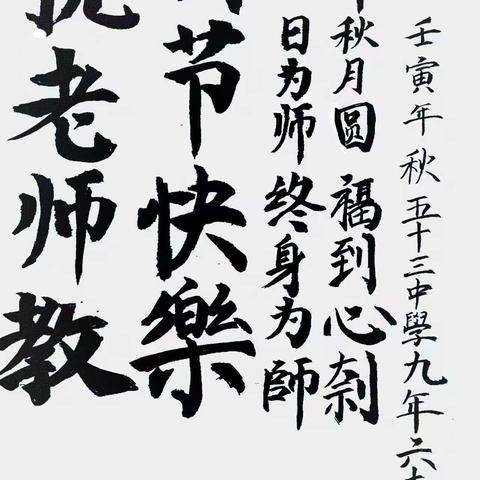 老师教
节快樂
日为师终身为師
秋月圆福到心
壬寅年秋五十三中學九年六